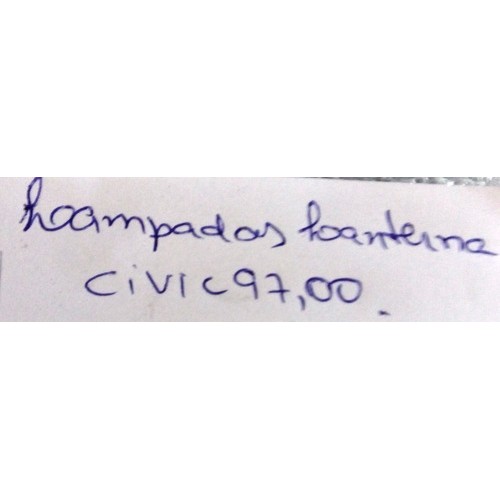 Lampadas Lanterna
Civic 97,00.